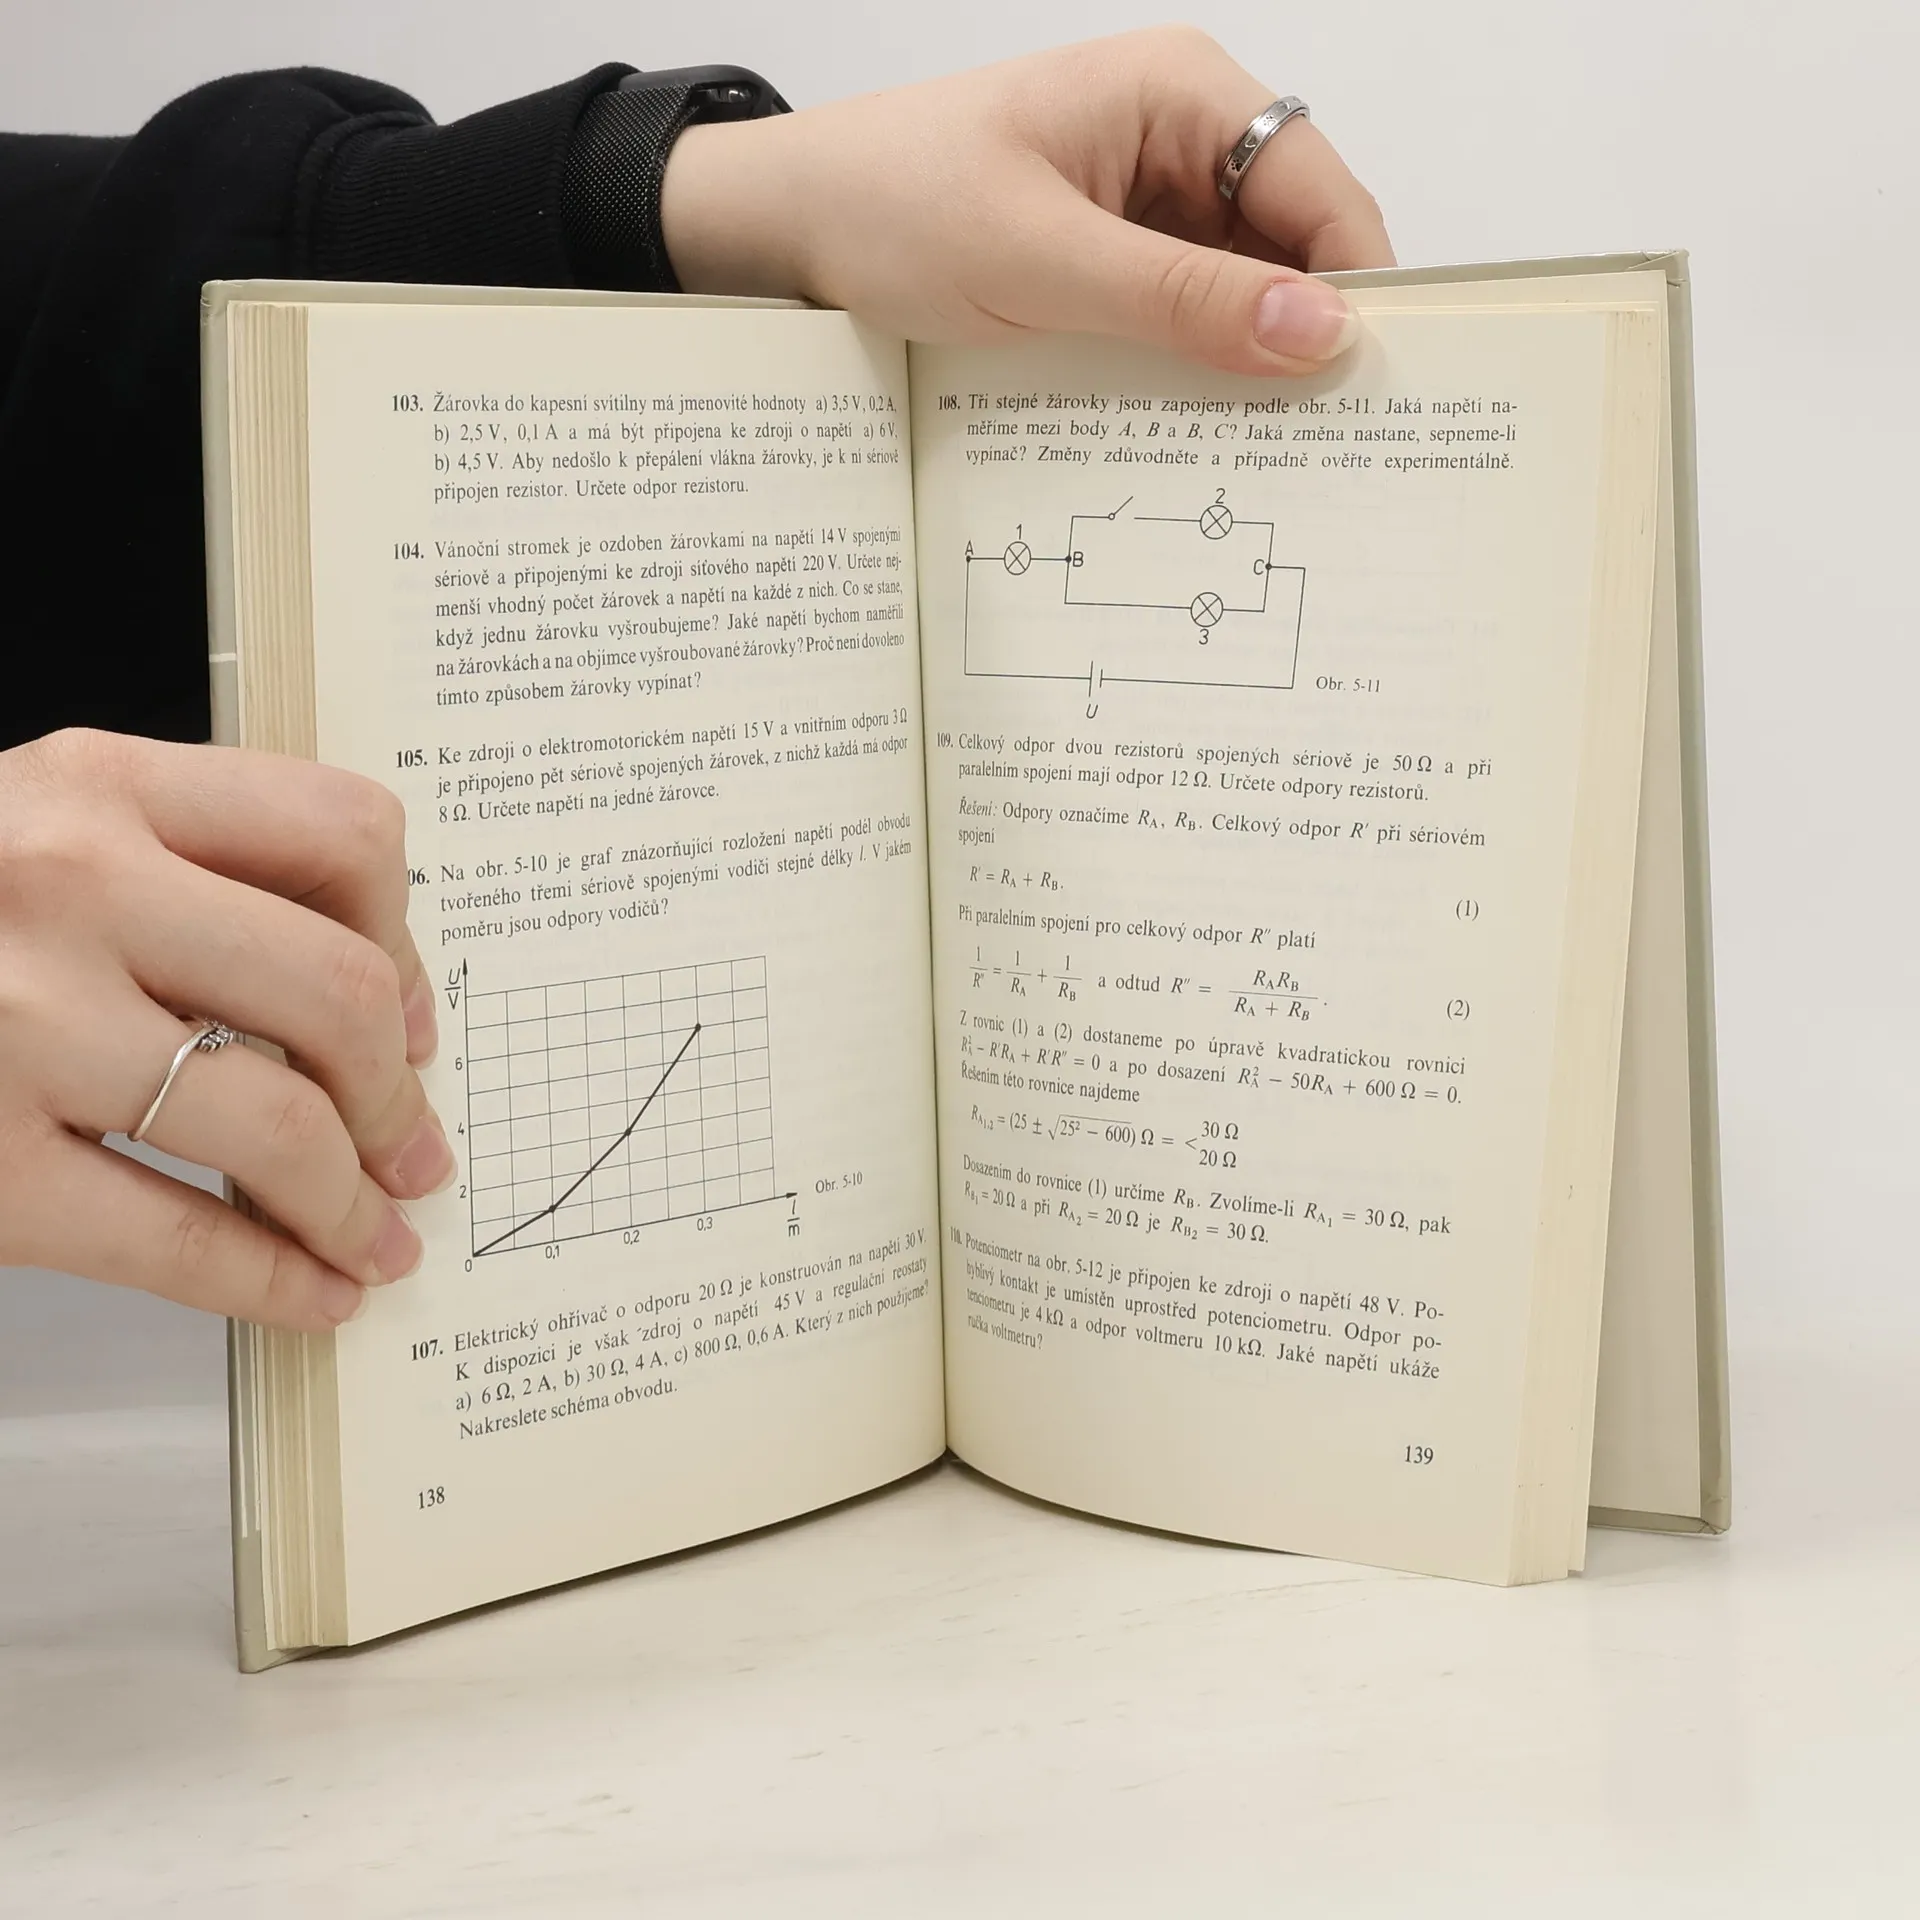 103. Žárovka do kapesní svítilny má jmenovité hodnoty a) 3,5 V, 0,2 A,
b) 2,5 V, 0,1 A a má být připojena ke zdroji o napětí a) 6 V,
b) 4,5 V. Aby nedošlo k přepálení vlákna žárovky, je k ní sériově
připojen rezistor. Určete odpor rezistoru.
104. Vánoční stromek je ozdoben žárovkami na napětí 14 V spojenými
sériově a připojenými ke zdroji síťového napětí 220 V. Určete nej-
menší vhodný počet žárovek a napětí na každé z nich. Co se stane,
když jednu žárovku vyšroubujeme? Jaké napětí bychom naměřili
na žárovkách a na objímce vyšroubované žárovky? Proč není dovoleno
tímto způsobem žárovky vypínat?
105. Ke zdroji o elektromotorickém napětí 15 V a vnitřním odporu 3 Ω
je připojeno pět sériově spojených žárovek, z nichž každá má odpor
8 Ω. Určete napětí na jedné žárovce.
06. Na obr. 5-10 je graf znázorňující rozložení napětí podél obvodu
tvořeného třemi sériově spojenými vodiči stejné délky l. V jakém
poměru jsou odpory vodičů?
U
V
6
4
2
0
0,1
0,2
0,3
l
m
Obr. 5-10
107. Elektrický ohřívač o odporu 20 Ω je konstruován na napětí 30 V.
K dispozici je však zdroj o napětí 45 V a regulační reostaty
a) 6 Ω, 2 A, b) 30 Ω, 4 A, c) 800 Ω, 0,6 A. Který z nich použijeme?
Nakreslete schéma obvodu.
138
108. Tři stejné žárovky jsou zapojeny podle obr. 5-11. Jaká napětí na-
měříme mezi body A, B a B, C? Jaká změna nastane, sepneme-li
vypínač? Změny zdůvodněte a případně ověřte experimentálně.
2
1
A
B
C
3
U
Obr. 5-11
109. Celkový odpor dvou rezistorů spojených sériově je 50 Ω a při
paralelním spojení mají odpor 12 Ω. Určete odpory rezistorů.
Řešení: Odpory označíme R_A, R_B. Celkový odpor R' při sériovém
spojení
R' = R_A + R_B.
(1)
Při paralelním spojení pro celkový odpor R'' platí
1/R'' = 1/R_A + 1/R_B a odtud R'' = R_A R_B / (R_A + R_B). (2)
Z rovnic (1) a (2) dostaneme po úpravě kvadratickou rovnici
R_A² − R'R_A + R'R'' = 0 a po dosazení R_A² − 50R_A + 600 Ω = 0.
Řešením této rovnice najdeme
R_A1,2 = (25 ± √(25² − 600)) Ω = < 30 Ω
20 Ω
Dosazením do rovnice (1) určíme R_B. Zvolíme-li R_A1 = 30 Ω, pak
R_B1 = 20 Ω a při R_A2 = 20 Ω je R_B2 = 30 Ω.
110. Potenciometr na obr. 5-12 je připojen ke zdroji o napětí 48 V. Po-
hyblivý kontakt je umístěn uprostřed potenciometru. Odpor po-
tenciometru je 4 kΩ a odpor voltmeru 10 kΩ. Jaké napětí ukáže
ručka voltmetru?
139